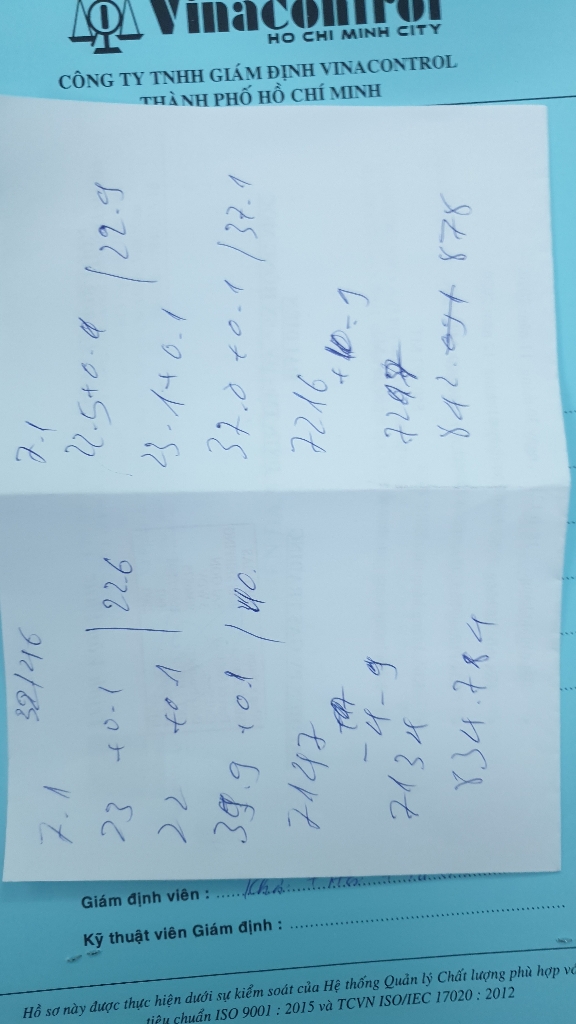 Vinacontrol
HO CHI MINH CITY
CÔNG TY TNHH GIÁM ĐỊNH VINACONTROL
THÀNH PHỐ HỒ CHÍ MINH
32/46
7.1
23 +0.1 | 22.6
22 +0.1
39.9 +0.1 / 40.
7147
-4-9
7134
834.784
7.1
22.5+0.1 / 22.9
23.1+0.1
37.0 +0.1 / 37.1
7216
842. 878
Giám định viên :
Kỹ thuật viên Giám định :
Hồ sơ này được thực hiện dưới sự kiểm soát của Hệ thống Quản lý Chất lượng phù hợp
tiêu chuẩn ISO 9001 : 2015 và TCVN ISO/IEC 17020 : 2012